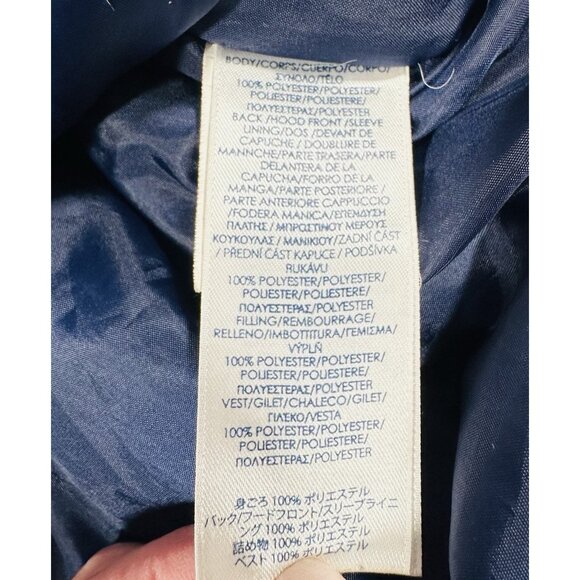 BODY/CORPS/CUERPO/CORPO/
ΣΥΝΟΛΟ/TĚLO
100% POLYESTER/POLYESTER/
POLIESTER/POLIESTERE/
ΠΟΛΥΕΣΤΕΡΑΣ/POLYESTER
BACK /HOOD FRONT /SLEEVE
LINING/DOS /DEVANT DE
CAPUCHE / DOUBLURE DE
MANNCHE/PARTE TRASERA/PARTE
DELANTERA DE LA
CAPUCHA/FORRO DE LA
MANGA/PARTE POSTERIORE /
PARTE ANTERIORE CAPPUCCIO
/FODERA MANICA/ΕΠΕΝΔΥΣΗ
ΠΛΑΤΗΣ / ΜΠΡΟΣΤΙΝΟΥ ΜΕΡΟΥΣ
ΚΟΥΚΟΥΛΑΣ/ ΜΑΝΙΚΙΟΥ/ZADNÍ ČÁST
/ PŘEDNÍ ČÁST KAPUCE / PODŠÍVKA
RUKÁVU
100% POLYESTER/POLYESTER/
POLIESTER/POLIESTERE/
ΠΟΛΥΕΣΤΕΡΑΣ/POLYESTER
FILLING/REMBOURRAGE/
RELLENO/IMBOTTITURA/ΓΕΜΙΣΜΑ/
VÝPLŇ
100% POLYESTER/POLYESTER/
POLIESTER/POLIESTERE/
ΠΟΛΥΕΣΤΕΡΑΣ/POLYESTER
VEST/GILET/CHALECO/GILET/
ΓΙΛΕΚΟ/VESTA
100% POLYESTER/POLYESTER/
POLIESTER/POLIESTERE/
ΠΟΛΥΕΣΤΕΡΑΣ/POLYESTER
身ごろ 100% ポリエステル
バック/フードフロント/スリーブライニ
ング 100% ポリエステル
詰め物 100% ポリエステル
ベスト 100% ポリエステル